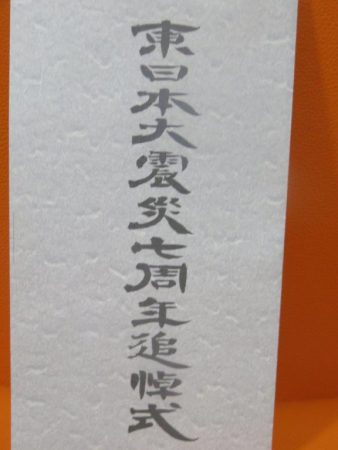 東日本大震災七周年追悼式